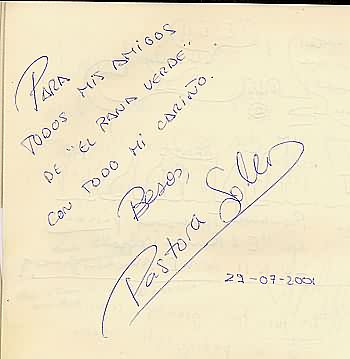 PARA
TODOS MIS AMIGOS
DE "EL RANA VERDE"
CON TODO MI CARIÑO.
BESOS,
Pastora Soler
29-07-2001